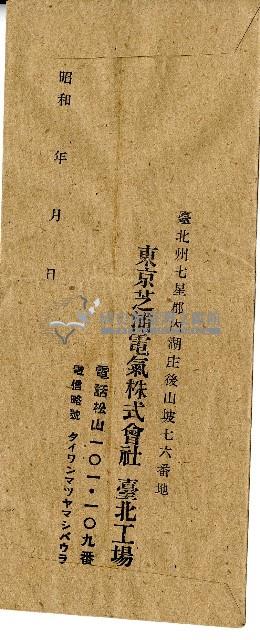 臺北州七星郡內湖庄後山坡七六番地
東京芝浦電氣株式會社 臺北工場
電話松山一〇一・一〇九番
電信略號 タイワンマツヤマシバウラ
昭和 年 月 日